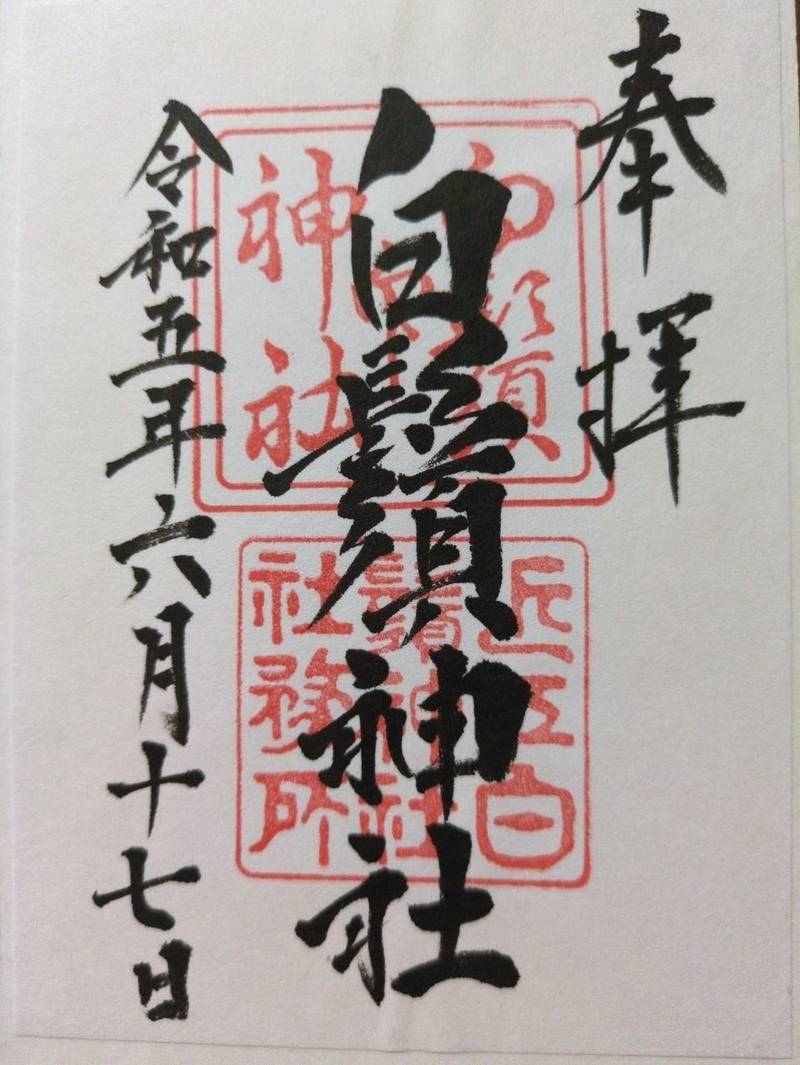 奉拝
白鬚神社
令和五年六月十七日
白鬚
神社
近江白
鬚神社
社務所